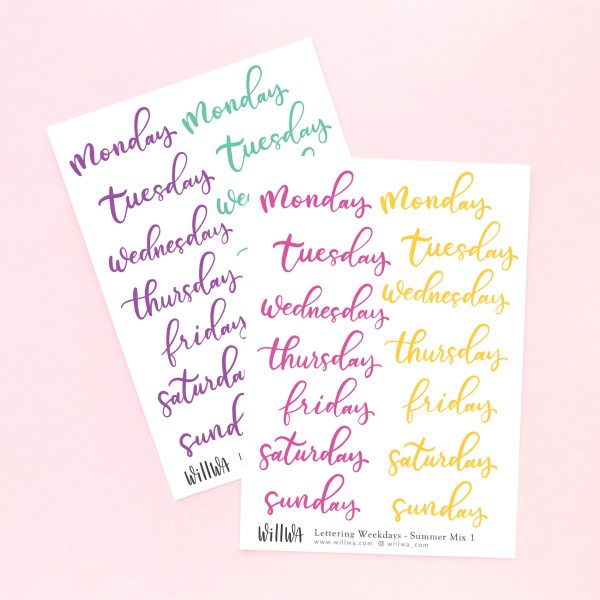 monday monday
tuesday tuesday
wednesday we
thursday
friday
saturda
sund
WillWA L
monday monday
tuesday tuesday
wednesday wednesday
thursday thursday
friday friday
saturday saturday
sunday sunday
WillWA Lettering Weekdays - Summer Mix 1
www.willwa.com willwa_com